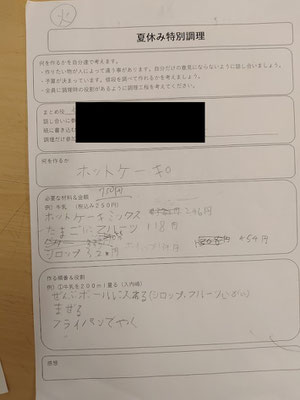 火
夏休み特別調理
何を作るかを自分達で考えます。
・作りたい物が人によって違う事があります。自分だけの意見にならないように話し合いましょう。
・予算が決まっています。値段を調べて作れるかを考えましょう。
・全員に調理時の役割があるように調理工程を考えてください。
まとめ役
話し合いに参
紙に書き込む
調理だけ参
何を作るか
ホットケーキ
必要な材料&金額
例）牛乳 （税込み250円）
ホットケーキミックス 246円
たまご フルーツ 118円
シロップ
作る順番&役割
例）①牛乳を200ml量る（久内峰）
ぜんぶボールに入れる(シロップ、フルーツいがい)
まぜる
フライパンでやく
感想